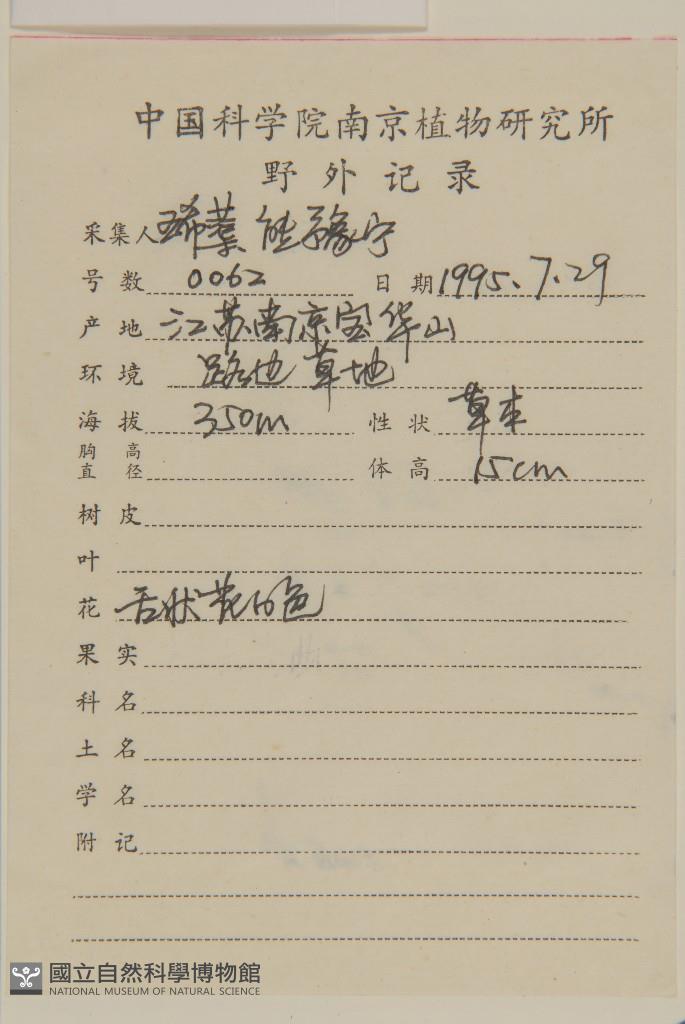 中国科学院南京植物研究所
野外记录
采集人 熊豫宁
号数 0062 日期 1995.7.29
产地 江苏南京宝华山
环境 路边草地
海拔 350m 性状 草本
胸高直径 体高 15cm
树皮
叶
花 舌状花白色
果实
科名
土名
学名
附记
國立自然科學博物館
NATIONAL MUSEUM OF NATURAL SCIENCE